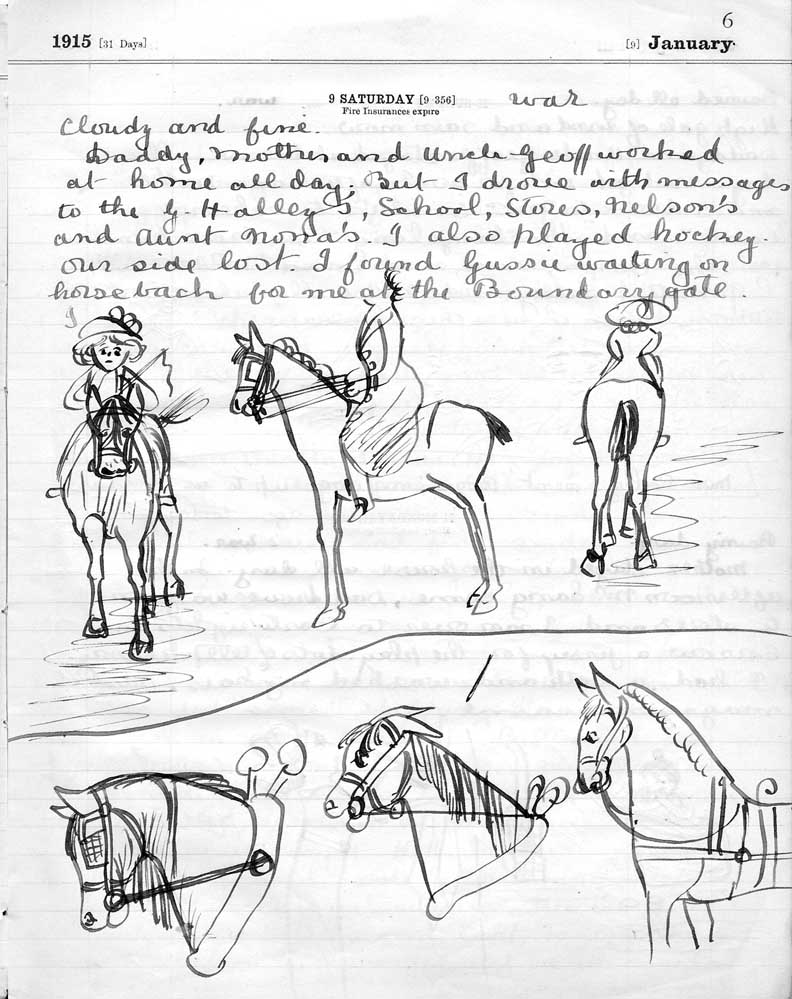 6
1915 [31 Days] [9] January.
9 SATURDAY [9-356] war
Fire Insurances expire
Cloudy and fine.
Daddy, Mother and Uncle Geoff worked
at home all day. But I drove with messages
to the G. Halley's, School, Stores, Nelson's
and Aunt Nona's. I also played hockey.
our side lost. I found Gussie waiting on
horseback for me at the Boundary gate.
I